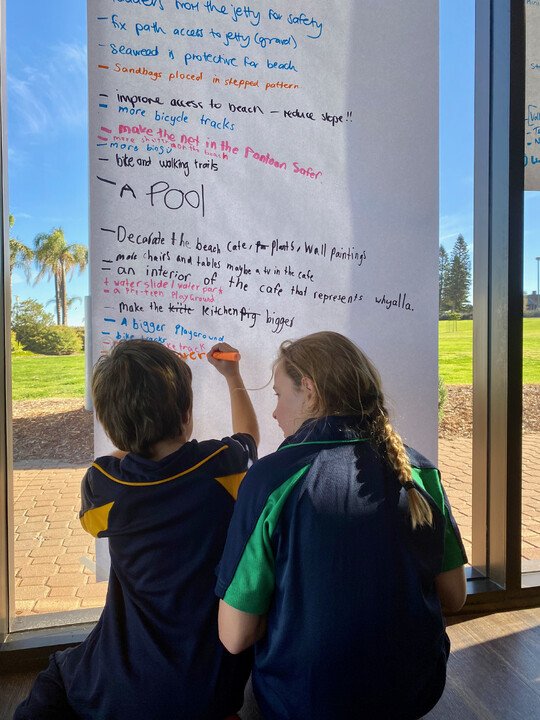 from the jetty for safety
- fix path access to jetty (gravel)
- Seaweed is protective for beach
- Sandbags placed in stepped pattern
- improve access to beach - reduce slope!!
- more bicycle tracks
- make the net in the Pontoon Safer
- more on the beach
- more
- bike and walking trails
- A POOL
- Decorate the beach cafe, plants, wall paintings
- more chairs and tables maybe a tv in the cafe
- an interior of the cafe that represents whyalla.
+ water slide / water park
- a Pre-teen PlayGround
- make the kitchen bigger
- A bigger Playground
- bike tracks
track